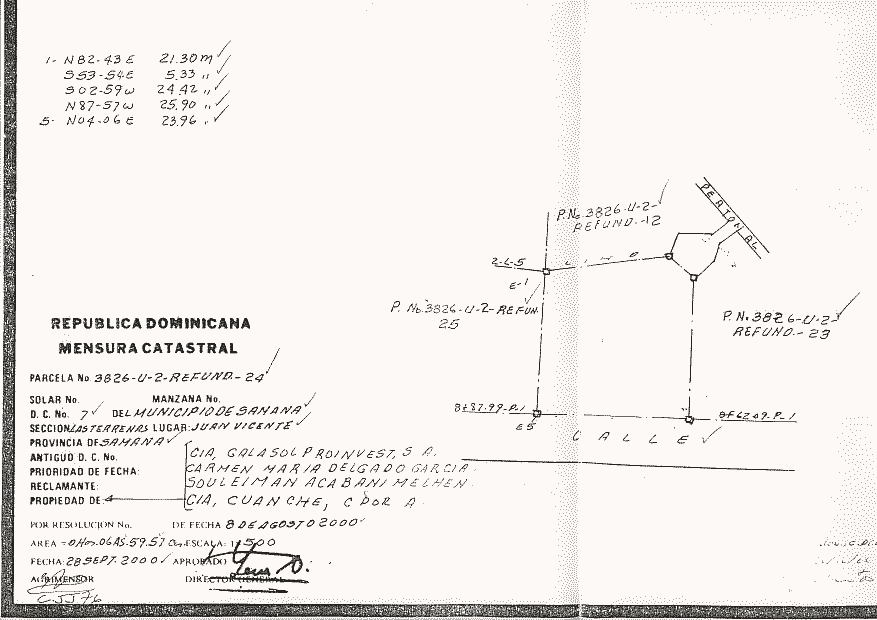 1- N82-43E 21.30m
S53-54E 5.33 "
S02-59W 24.42 "
N87-57W 25.90 "
5- N04-06E 23.96 "
PEATONAL
P.No.3826-U-2-
REFUND.-12
2-L-5
LINO
E-1
P. No.3826-U-2-REFUN.
25
P. No.3826-U-2-
REFUND.-23
REPUBLICA DOMINICANA
MENSURA CATASTRAL
PARCELA No. 3826-U-2-REFUND.-24
SOLAR No. MANZANA No.
D. C. No. 7 DEL MUNICIPIO DE SAMANA
SECCION LAS TERRENAS LUGAR: JUAN VICENTE
PROVINCIA DE SAMANA
ANTIGUO D. C. No.
PRIORIDAD DE FECHA:
RECLAMANTE:
PROPIEDAD DE:
CIA, GALASOL PROINVEST, S A.
CARMEN MARIA DELGADO GARCIA
SOULEIMAN ACABANI MELHEN
CIA, CUANCHE, C POR A
E5
CALLE
POR RESOLUCION No. DE FECHA 8 DE AGOSTO 2000
AREA = 0Hs.06AS.59.57 Cs. ESCALA: 1:500
FECHA: 28 SEPT. 2000 APROBADO
AGRIMENSOR DIRECTOR GENERAL